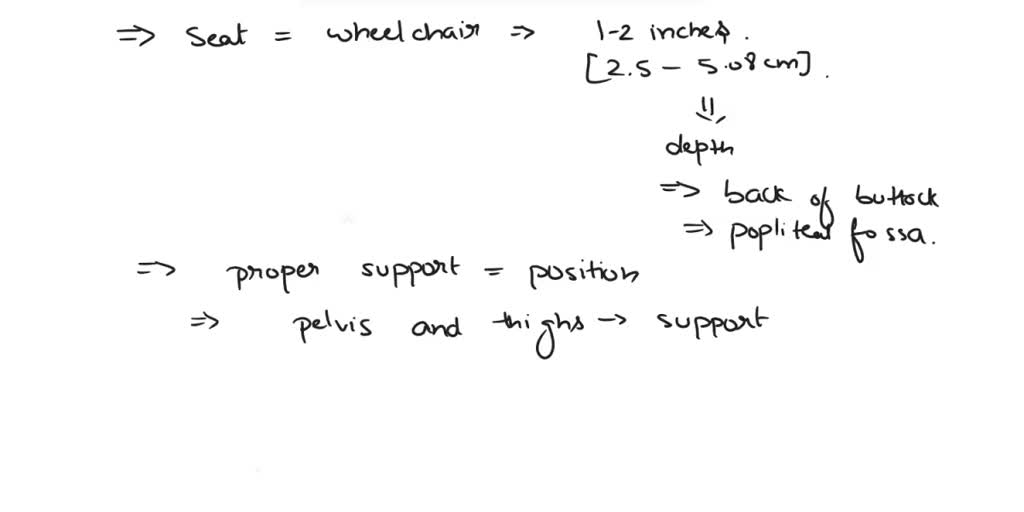 ⇒ Seat = wheelchair ⇒ 1-2 inches.
[2.5 - 5.08 cm].
⇓
depth
⇒ back of buttock
⇒ popliteal fossa.
⇒ proper support = position
⇒ pelvis and thighs → support